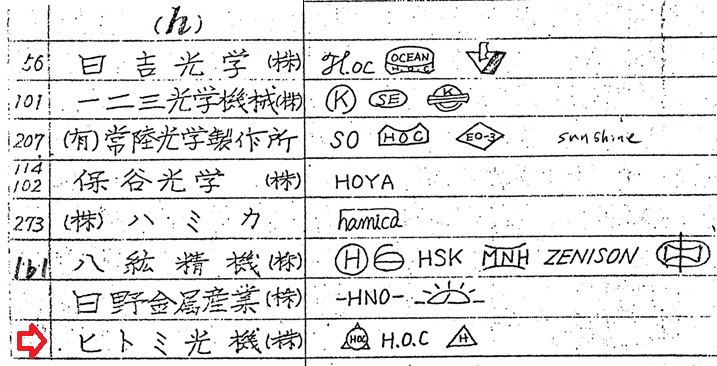 (h)
56 日吉光学(株) H.oc OCEAN H.O.C
101 一二三光学機械(株) K SE K
207 (有)常陸光学製作所 SO HOC EO-3 sunshine
114
102 保谷光学(株) HOYA
273 (株)ハミカ hamica
161 八紘精機(株) H HSK MNH ZENISON
日野金属産業(株) -HNO-
ヒトミ光機(株) HOC H.O.C H